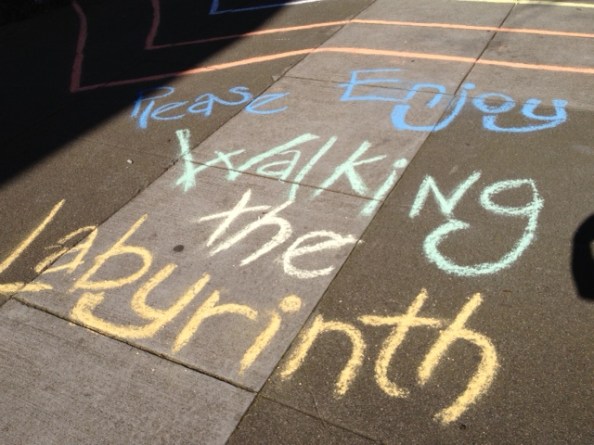 Please Enjoy
Walking
the
Labyrinth